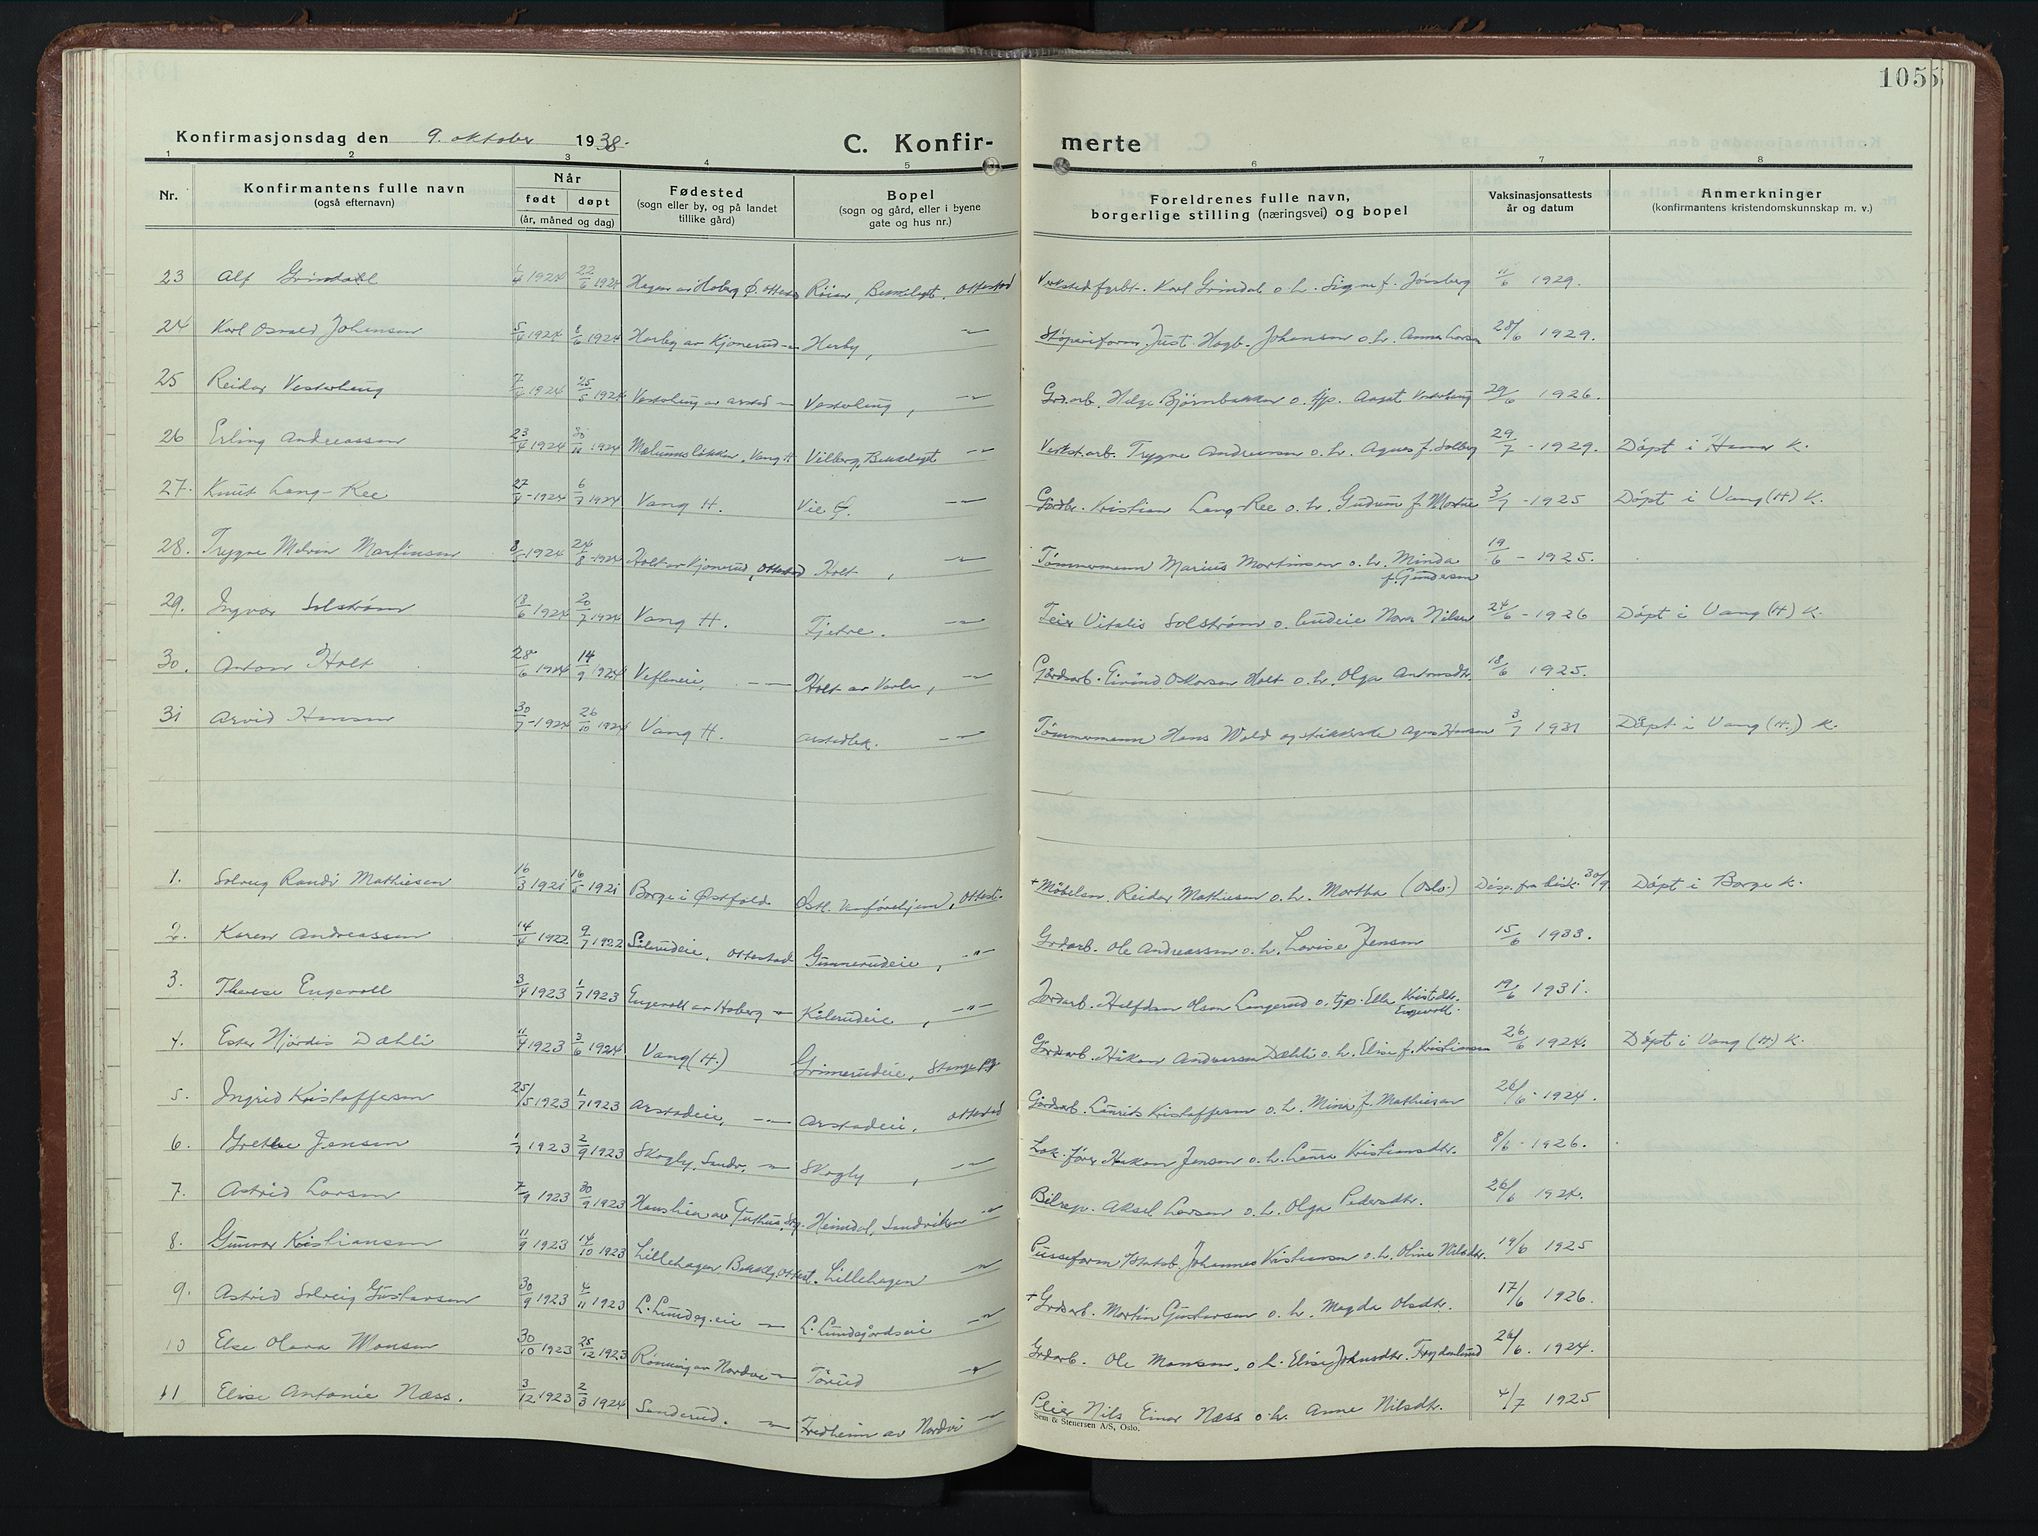 1055
Konfirmasjonsdag den 9. oktober 1938.
C. Konfir- merte
1 2 3 4 5 6 7 8
Nr. Konfirmantens fulle navn (også efternavn) Når født døpt (år, måned og dag) Fødested (sogn eller by, og på landet tillike gård) Bopel (sogn og gård, eller i byene gate og hus nr.) Foreldrenes fulle navn, borgerlige stilling (næringsvei) og bopel Vaksinasjonsattests år og datum Anmerkninger (konfirmantens kristendomskunnskap m. v.)
23 Alf Grindal 1/4 1924 22/6 1924 Hagen av Hoberg Ø. Ottestad Bekkelaget, Ottestad Karl Grindal o. h. Signe f. Jønsberg 11/6 1929.
24 Karl Osvald Johansen 5/4 1924 8/6 1924 Horby av Kjonerud -"- Horby, -"- Støperiform. Just. Hagb. Johansen o. h. Anna Larsen 28/6 1929.
25 Reidar Vesterhaug 7/4 1924 25/5 1924 Vesterhaug av Arstad -"- Vesterhaug, -"- Grdarb. Helge Bjørnbakken o. Aagot Vesterhaug 29/6 1926.
26 Erling Andreassen 23/4 1924 30/10 1924 Mælumsløkken, Vang H Vilberg, Bekkelaget -"- Verkst.arb. Trygve Andreassen o. h. Agnes f. Solberg 29/7 - 1929. Døpt i Hamar K.
27. Knut Lang-Ree 27/4 - 1924 6/7 1924 Vang H. Vie -"- Gårdbr. Kristian Lang-Ree o. h. Gudrun f. 3/7 - 1925 Døpt i Vang (H) K.
28. Trygve Melvin Martinsen 8/5 - 1924 24/8 - 1924 Holt av Kjonerud, Ottestad Holt, -"- Tømmermann Marius Martinsen o. h. Minda f. Gundersen 19/6 - 1925.
29. Ingvar Solstrøm 18/6 1924 20/7 1924 Vang H. Tjetre. -"- Vitalis Solstrøm o. Nora Nilsen 24/6 - 1926 Døpt i Vang (H) K.
30. Anton Holt 28/6 1924 14/9 1924 -"- Holt av -"- Gårdsarb. Eivind Oskarson Holt o. h. Olga Antonsdtr. 18/6 1925.
31 Arvid Hansen 30/7 - 1924 26/10 1924 Vang H. Arstadlek. -"- Tømmermann Hans Wold og Agnes Hansen 3/7 1931 Døpt i Vang (H.) K.
1. Solveig Randi Mathiesen 16/3 1921 16/5 1921 Borge i Østfold Østl. Vanførehjem, Ottest. + Reidar Mathiesen o. h. Martha (Oslo) Disp. fra bisk. 30/9 Døpt i Borge K.
2. Karen Andreassen 14/4 1922 9/7 1922 Sålerudeie, Ottestad Gimmerudeie, -"- Grdarb. Ole Andreassen o. h. Lovise Jensen 15/6 1933.
3. Therese Engevoll 3/4 1923 1/7 1923 Engevoll av Hoberg -"- Kålerudeie, -"- Jordarb. Halfdan Olsen Langerud o. Ella Kristdtr. Engevoll. 19/6 1931.
4. Ester Hjørdis Dæhli 11/4 1923 3/6 1924 Vang (H.) Grimerudeie, Stange pgj Gårdsarb. Håkon Andersen Dæhli o. h. Elise f. Kristiansen 26/6 1924. Døpt i Vang (H) K.
5. Ingrid Kristoffersen 25/5 1923 1/7 1923 Arstadeie, -"- Arstadeie, Ottestad Gårdsarb. Laurits Kristoffersen o. h. Mina f. Mathiesen 26/6 - 1924.
6. Grethe Jensen 1/7 1923 2/9 1923 Skogly, Sandv. -"- Skogly, -"- Lok. fører Håkon Jensen o. h. Laura Kristiansdtr. 8/6 - 1926.
7. Astrid Larsen 7/9 1923 30/9 1923 Hanslien av Heimdal, Sandviken -"- Bilrep. Aksel Larsen o. h. Olga Pedersdtr. 26/6 1924.
8. Gunvor Kristiansen 11/9 1923 14/10 1923 Lillehagen, Bekkelg. Ottest. Lillehagen -"- Pusseform. Johannes Kristiansen o. h. Oline Nilsdtr. 19/6 1925
9. Astrid Solveig Gustavsen 30/9 1923 4/11 1923 L. Lundgj.eie -"- L. Lundgjordseie -"- + Grdsarb. Martin Gustavsen o. h. Magda Olsdtr. 17/6 1926.
10 Else Olava Monsen 30/10 1923 25/12 1923 Rønning av Nordvi -"- Tørud -"- Grdarb. Ole Monsen, o. h. Elise Johansdtr. Frydenlund 26/6. 1924.
11 Elise Antonie Næss. 3/12 1923 2/3 1924 Sanderud. -"- Fredheim av Nordvi -"- Pleier Nils Einar Næss o. h. Anne Nilsdtr. 4/7 1925
Sem & Stenersen A/S, Oslo.